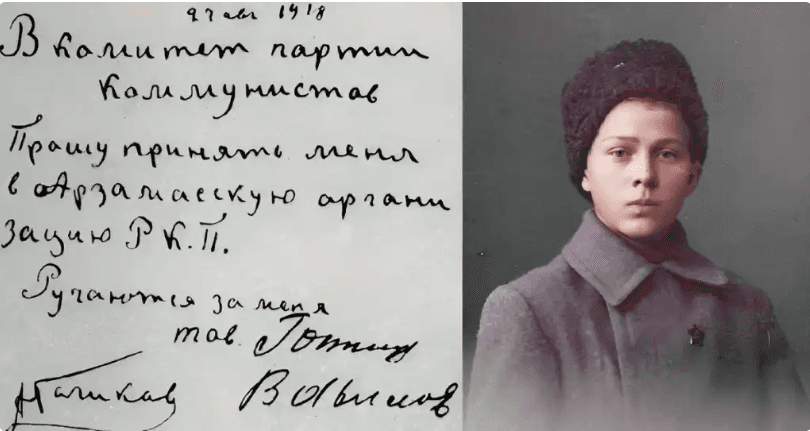 27 авг 1918
В комитет партии
коммунистов
Прошу принять меня
в Арзамасскую органи
зацию Р.К.П.
Ручаются за меня
тов.
Вавилов